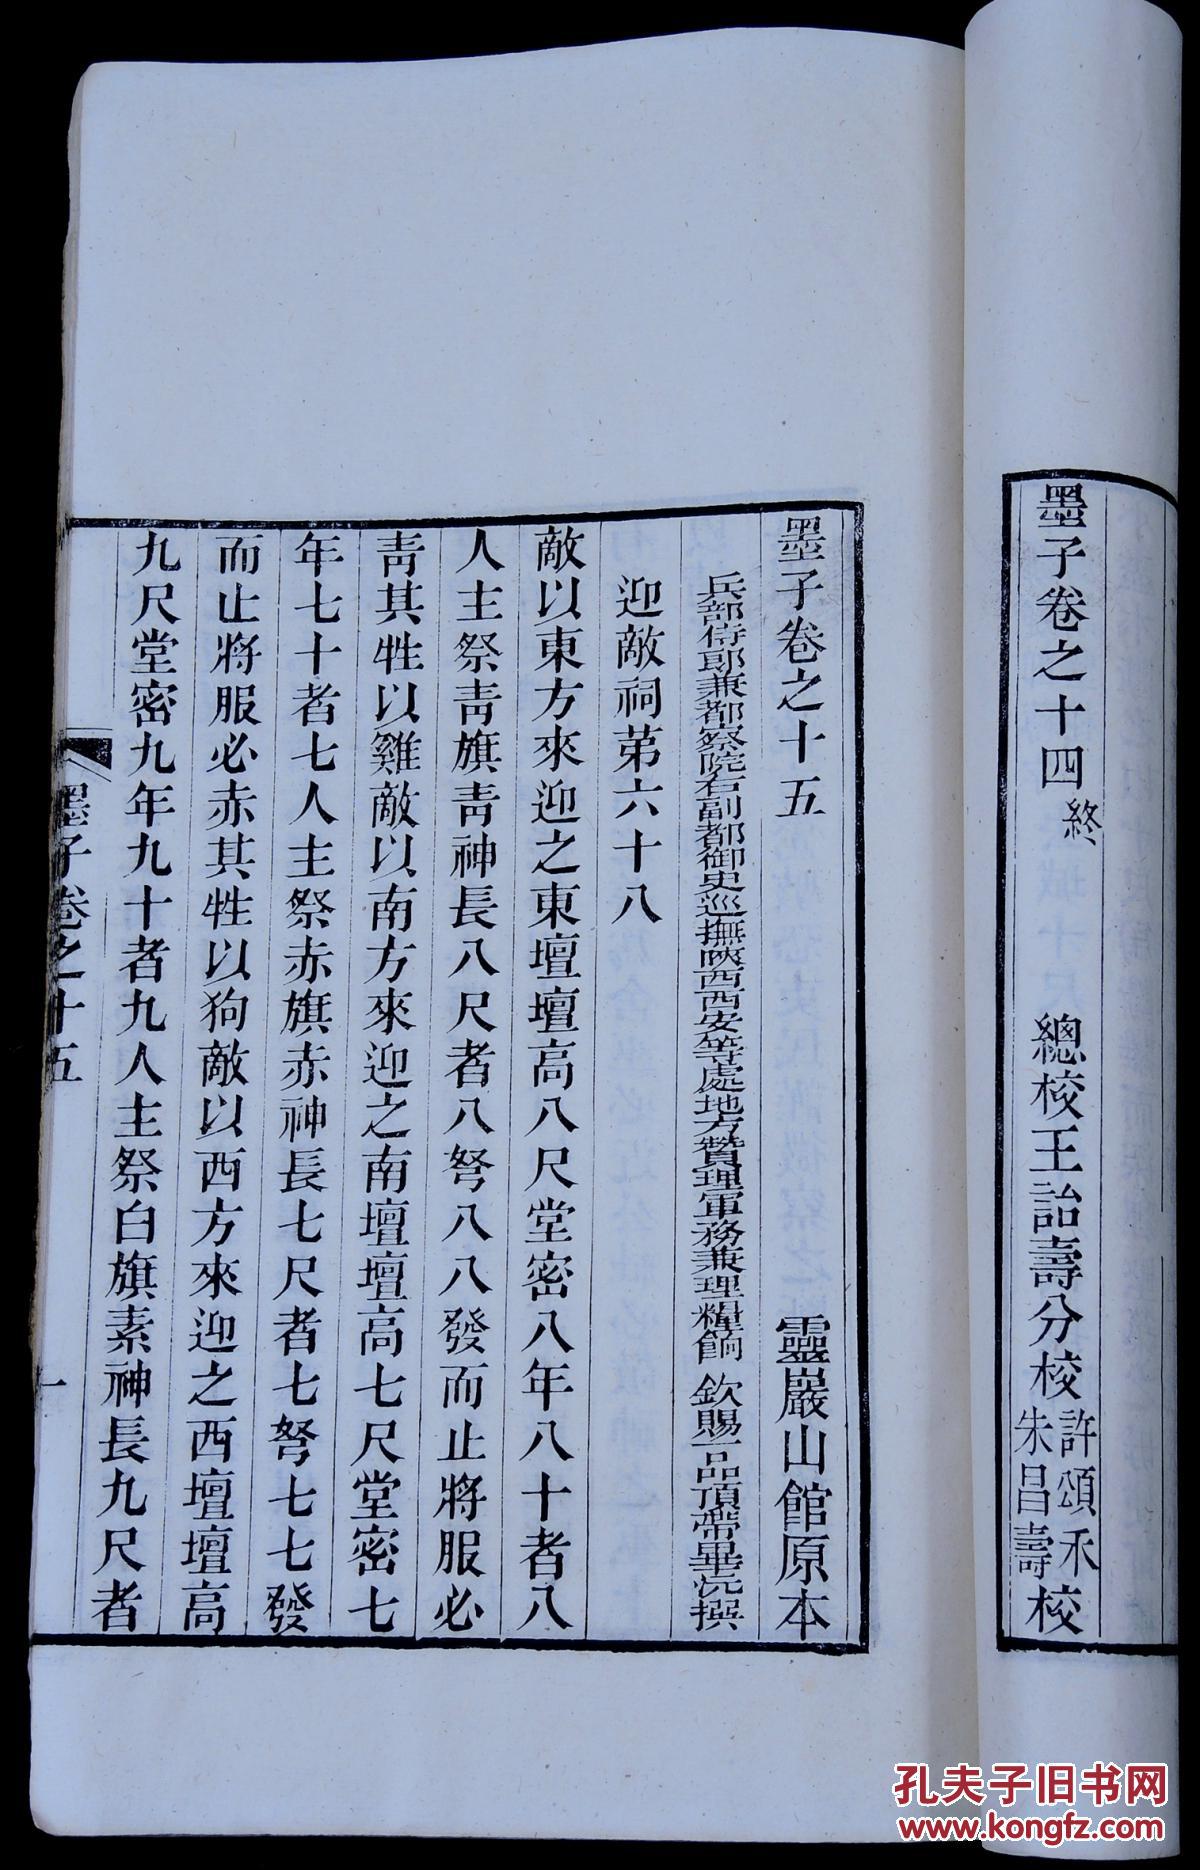 墨子卷之十四 終 總校王詒壽分校 許頌禾 朱昌壽 校
墨子卷之十五 靈巖山館原本
兵部侍郎兼都察院右副都御史巡撫陝西西安等處地方贊理軍務兼理糧餉 欽賜一品頂帶畢沅撰
迎敵祠第六十八
敵以東方來迎之東壇壇高八尺堂密八年八十者八
人主祭青旗青神長八尺者八弩八八發而止將服必
青其牲以雞敵以南方來迎之南壇壇高七尺堂密七
年七十者七人主祭赤旗赤神長七尺者七弩七七發
而止將服必赤其牲以狗敵以西方來迎之西壇壇高
九尺堂密九年九十者九人主祭白旗素神長九尺者
墨子卷之十五 一
孔夫子旧书网
www.kongfz.com